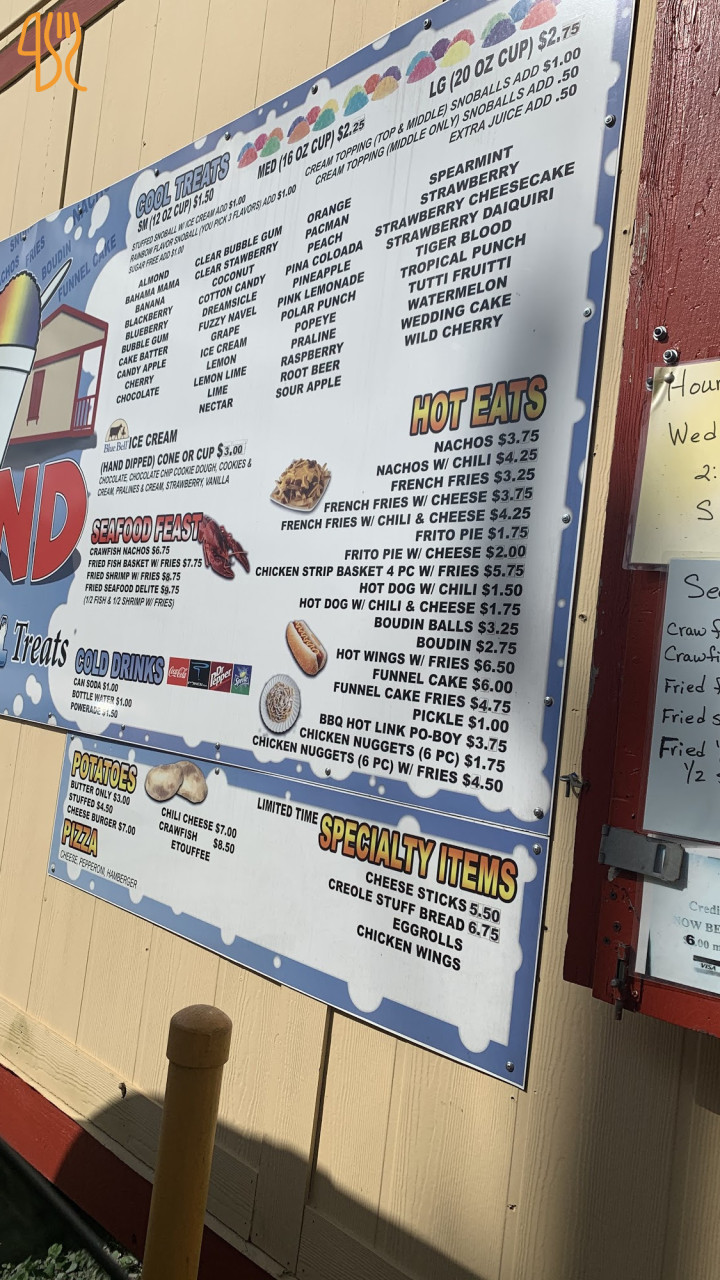 BOUDIN
FRIES
FUNNEL CAKE
ND
Treats
COOL TREATS
SM (12 OZ CUP) $1.50
MED (16 OZ CUP) $2.25
LG (20 OZ CUP) $2.75
STUFFED SNOBALL W/ ICE CREAM ADD $1.00
RAINBOW FLAVOR SNOBALL (YOU PICK 3 FLAVORS) ADD $1.00
SUGAR FREE ADD $1.00
CREAM TOPPING (TOP & MIDDLE) SNOBALLS ADD $1.00
CREAM TOPPING (MIDDLE ONLY) SNOBALLS ADD .50
EXTRA JUICE ADD .50
ALMOND
BAHAMA MAMA
BANANA
BLACKBERRY
BLUEBERRY
BUBBLE GUM
CAKE BATTER
CANDY APPLE
CHERRY
CHOCOLATE
CLEAR BUBBLE GUM
CLEAR STAWBERRY
COCONUT
COTTON CANDY
DREAMSICLE
FUZZY NAVEL
GRAPE
ICE CREAM
LEMON
LEMON LIME
LIME
NECTAR
ORANGE
PACMAN
PEACH
PINA COLOADA
PINEAPPLE
PINK LEMONADE
POLAR PUNCH
POPEYE
PRALINE
RASPBERRY
ROOT BEER
SOUR APPLE
SPEARMINT
STRAWBERRY
STRAWBERRY CHEESECAKE
STRAWBERRY DAIQUIRI
TIGER BLOOD
TROPICAL PUNCH
TUTTI FRUITTI
WATERMELON
WEDDING CAKE
WILD CHERRY
Blue Bell ICE CREAM
(HAND DIPPED) CONE OR CUP $3.00
CHOCOLATE, CHOCOLATE CHIP COOKIE DOUGH, COOKIES &
CREAM, PRALINES & CREAM, STRAWBERRY, VANILLA
SEAFOOD FEAST
CRAWFISH NACHOS $6.75
FRIED FISH BASKET W/ FRIES $7.75
FRIED SHRIMP W/ FRIES $8.75
FRIED SEAFOOD DELITE $9.75
(1/2 FISH & 1/2 SHRIMP W/ FRIES)
COLD DRINKS
Coca-Cola
Dr Pepper
Sprite
CAN SODA $1.00
BOTTLE WATER $1.00
POWERADE $1.50
HOT EATS
NACHOS $3.75
NACHOS W/ CHILI $4.25
FRENCH FRIES $3.25
FRENCH FRIES W/ CHEESE $3.75
FRENCH FRIES W/ CHILI & CHEESE $4.25
FRITO PIE $1.75
FRITO PIE W/ CHEESE $2.00
CHICKEN STRIP BASKET 4 PC W/ FRIES $5.75
HOT DOG W/ CHILI $1.50
HOT DOG W/ CHILI & CHEESE $1.75
BOUDIN BALLS $3.25
BOUDIN $2.75
HOT WINGS W/ FRIES $6.50
FUNNEL CAKE $6.00
FUNNEL CAKE FRIES $4.75
PICKLE $1.00
BBQ HOT LINK PO-BOY $3.75
CHICKEN NUGGETS (6 PC) $1.75
CHICKEN NUGGETS (6 PC) W/ FRIES $4.50
POTATOES
BUTTER ONLY $3.00
STUFFED $4.50
CHEESE BURGER $7.00
CHILI CHEESE $7.00
CRAWFISH $8.50
ETOUFFEE
PIZZA
CHEESE, PEPPERONI, HAMBERGER
LIMITED TIME SPECIALTY ITEMS
CHEESE STICKS 5.50
CREOLE STUFF BREAD 6.75
EGGROLLS
CHICKEN WINGS
Hour
Wed
2:
S
Se
Craw f
Crawfi
Fried
Fried s
Fried
1/2
Credi
NOW BE
$6.00 m
VISA